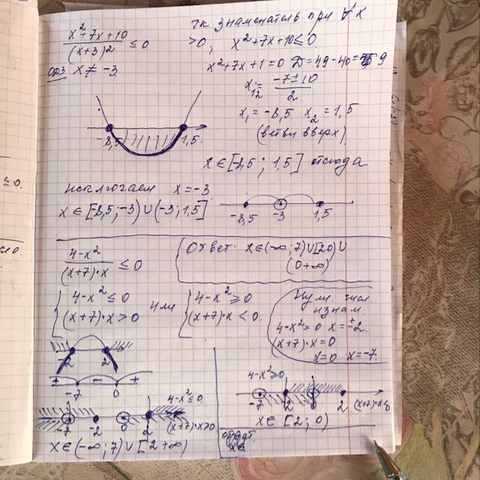 x²+7x+10 / (x+3)² ≤ 0
ОДЗ x ≠ -3
т.к. знаменатель при ∀ x
>0, x²+7x+10≤0
x²+7x+1=0 D=49-40= 9
x₁₂ = -7±10 / 2
x₁=-8,5 x₂=1,5
(ветви вверх)
-8,5 1,5
x∈[-8,5; 1,5] отсюда
исключаем x=-3
x∈[-8,5;-3)∪(-3;1,5]
-8,5 -3 1,5
4-x² / (x+7)·x ≤ 0
Ответ: x∈(-∞;7)∪[20)∪
(0+∞)
{ 4-x² ≤ 0
(x+7)·x > 0
или
{ 4-x² ≥ 0
(x+7)·x < 0
Нули числ
и знам
4-x²=0 x=±2
(x+7)·x=0
x=0 x=-7
2 2
+ - +
-7 0
4-x²≤0
-7 -2 0 2
(x+7)·x>0
x∈(-∞;7)∪[2+∞)
4-x²≥0
-7 2 2
x∈[2;0)